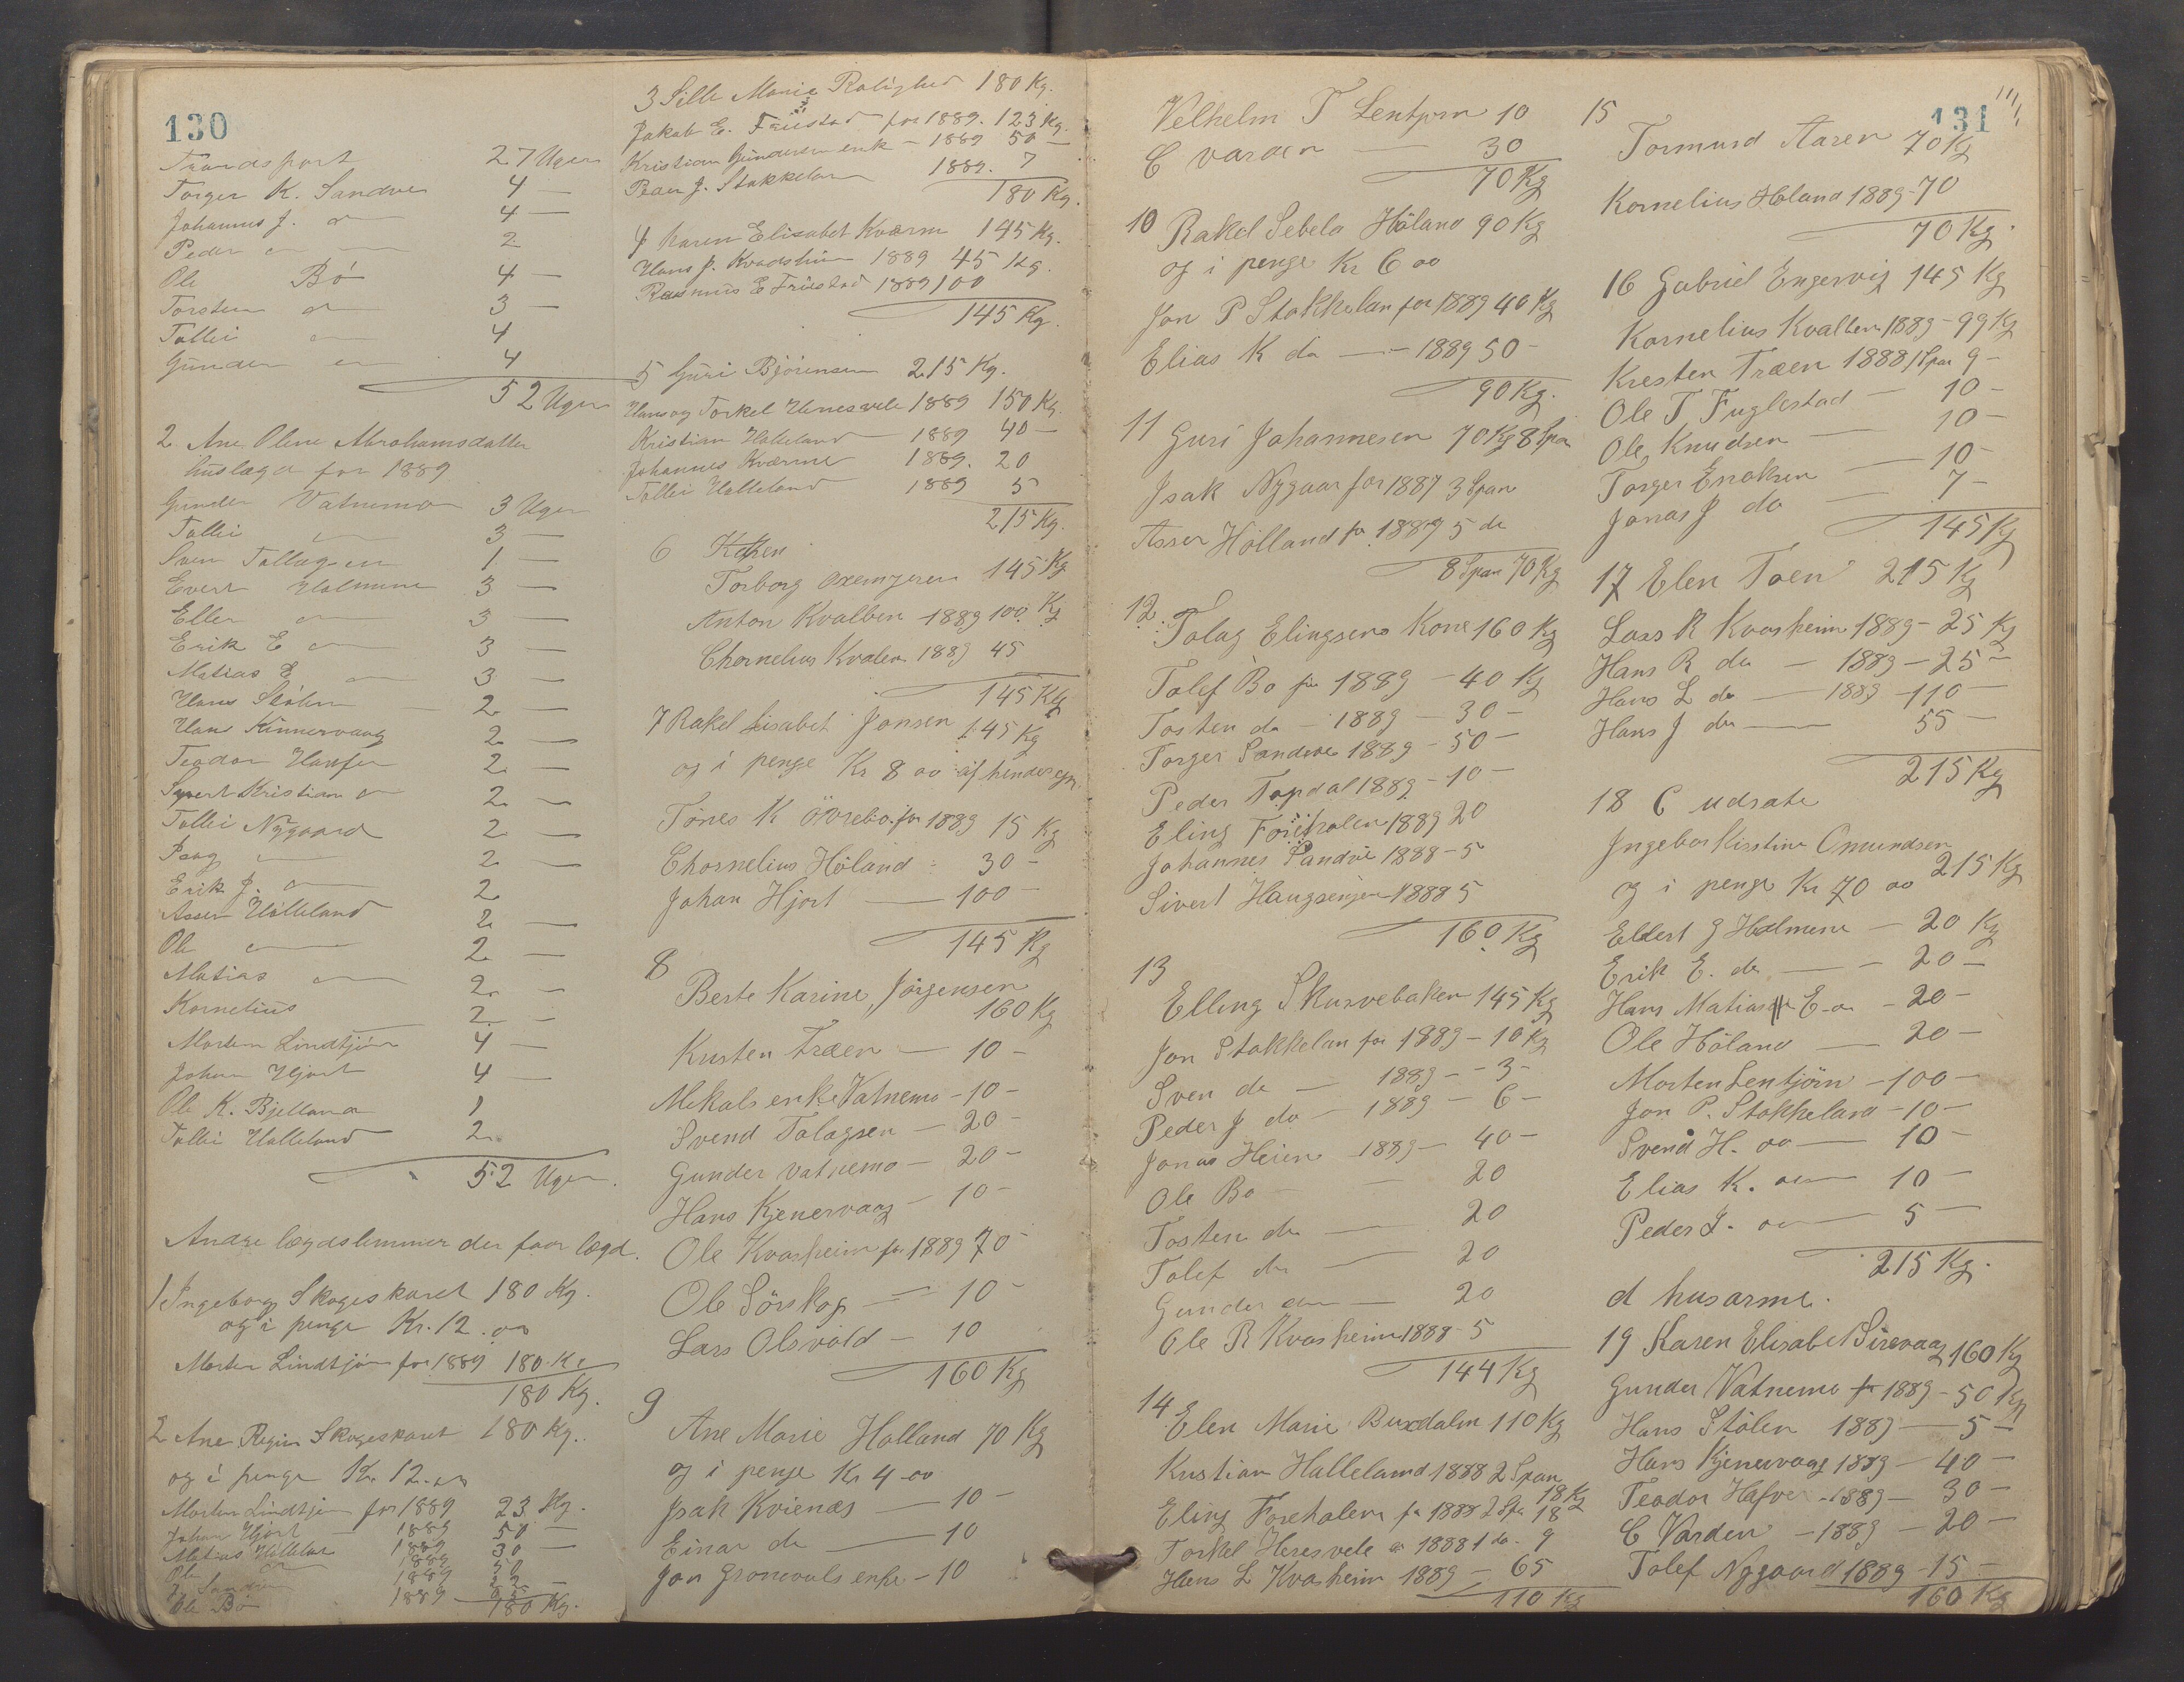 130
Transport 27 Uger
Torger K. Sandve 4 —
Johannes J. do 4 —
Peder do 2
Ole Bö 4 —
Torsten do 3 —
Tollei do 4
Gunder do 4
52 Uger
2 Ane Oline Abrahamsdatter
huslægd for 1889
Gunder Vatnemo 3 Uger
Tollei — 3 —
Sven Tollagsen 1 —
Evert Holmene 3 —
Eller do 3 —
Erik E do 3 —
Matias E do 3 —
Hans Stölen 2 —
Hans Kinnervaag 2 —
Teodor Hansen 2 —
Syvert Kristian do 2 —
Tollei Nygaard 2 —
2 —
Erik J. do 2
Asser Hölleland 2 —
Ole do 2 —
Matias do 2 —
Kornelius 2 —
Morten Lindtjörn 4 —
Johan Hjort 4 —
Ole K. Bjelland 1
Tollei Halleland 2
52 Uger.
Andre lægdslemmer der faar lægd.
1 Ingeborg Skogeskaret 180 Kg.
og i penge Kr. 12.00
Morten Lindtjörn for 1889 180 Kg
180 Kg.
2 Ane Regine Skogeskaret 180 Kg.
og i penge Kr. 12.00
Morten Lindtjörn for 1889 23 Kg.
Johan Hjort — 1889 50 —
Matias Hölleland 1889 30 —
Ole do 1889 50
1889
Ole Bö 1889
180 Kg.
3 Sille Marie Rolighed 180 Kg.
Jakob E. Fuiestad for 1889. 123 Kg.
Kristian Gundersen enk — 1889 50 —
Peder J. Stokkelan 1889. 7
180 Kg.
4 Karen Elisabet Kværme 145 Kg.
Hans J. Kvasheim 1889 45 Kg.
Rasmus E Fuiestad 1889 100
145 Kg.
5 Guri Björensen 215 Kg.
Hans og Torkel Heresvele 1889 150 Kg.
Kristian Halleland 1889 40 —
Johannes Kværme 1889. 20
Tollei Halleland 1889 5
215 Kg.
6 Karen
Torborg Oxemyren 145 Kg
Anton Kvalben 1889 100 Kg
Chornelius Kvalen 1889 45
145 Kg
7 Rakel Lisabet Jansen 145 Kg
og i penge Kr 8 00 af hendes egn.
Tönes K Övrebö for 1889 15 Kg
Chornelius Höland 30 —
Johan Hjort — 100 —
145 Kg
8
Berte Karine Jörgensen
160 Kg
Kristen Træen — 10 —
Mekals enke Vatnemo — 10 —
Svend Talagsen — 20 —
Gunder Vatnemo — 20 —
Hans Kjenervaag — 10 —
Ole Kvasheim for 1889 70 —
Ole Sörskog — 10 —
Lars Olsvold — 10
160 Kg
9
Ane Marie Holland 70 Kg
og i penge Kr 4-00
Isak Kvienæs — 10 —
Einar do — 10
Jon Gronevols enke — 10
131
Velhelm T Lentjörn 10
C Varden — 30
70 Kg
10 Rakel Sebela Höland 90 Kg
og i penge Kr 6 00
Jon P Stokkelan for 1889 40 Kg
Elias K do — 1889 50 —
90 Kg.
11 Guri Johannesen 70 Kg 8 Span
Isak Nygaar for 1887 3 Span
Asser Hölland for 1887 5 do
8 Span 70 Kg
12.
Tolag Elingsens Kone 160 Kg
Tolef Bö for 1889 — 40 Kg
Tosten do — 1889 — 30 —
Torger Sandve 1889 — 50 —
Peder Topdal 1889 — 10 —
Eling Forehalen 1889 20
Johannes Sandve 1888 — 5
Sivert Haugsenjen 1888 5
160 Kg
13
Elling Skurvebaken 145 Kg
Jon Stokkelan for 1889 — 10 Kg
Sven do — 1889 — 3 —
Peder J do — 1889 — 6 —
Jonas Heien 1889 — 40 —
Ole Bö — 20
Tosten do — 20
Tolef do — 20
Gunder do — 20
Ole R Kvasheim 1888 — 5
144 Kg
14
Elen Marie Buxdalen 110 Kg
Kristian Halleland 1888 2 Span
18 Kg
Eling Forehalen for 1888 2 Spa 18
Torkel Heresvele 1888 1 do. 9
Hans L Kvasheim 1889 — 65
110 Kg
15
Tormund Aasen 70 Kg
Kornelius Höland 1889 - 70
70 Kg.
16 Gabriel Engervig 145 Kg
Kornelius Kvalben 1889 — 99 Kg
Kresten Træen 1888 1 Span 9 —
Ole T Fuglestad — 10 —
Ole Knudsen — 10 —
Torger Enoksen — 10 —
Jonas J do — 7 —
145 Kg
17 Elen Toen 215 Kg
Lars R Kvasheim 1889 — 25 Kg
Hans R do — 1889 — 25 —
Hans L do — 1889 — 110 —
Hans J do — 55 —
215 Kg
18 C udsate
Ingebor Kirstine Omundsen
215 Kg
og i penge Kr 70 00
Eldert G Holmene — 20 Kg
Erik E. do — 20 —
Hans Matias E. do — 20 —
Ole Höland — 20 —
Morten Lentjörn — 100 —
Jon P. Stokkeland — 10 —
Svend H. do — 10 —
Elias K. do — 10 —
Peder J. do — 5 —
215 Kg.
d husarme.
19 Karen Elisabet Sirevaag 160 Kg
Gunder Vatnemo for 1889 — 50 Kg
Hans Stölen 1889 — 5 —
Hans Kjenervaag 1889 — 40 —
Teodor Hafve 1889 — 30 —
C Varden — 1889 — 20 —
Tolef Nygaard 1889 — 15 —
160 Kg